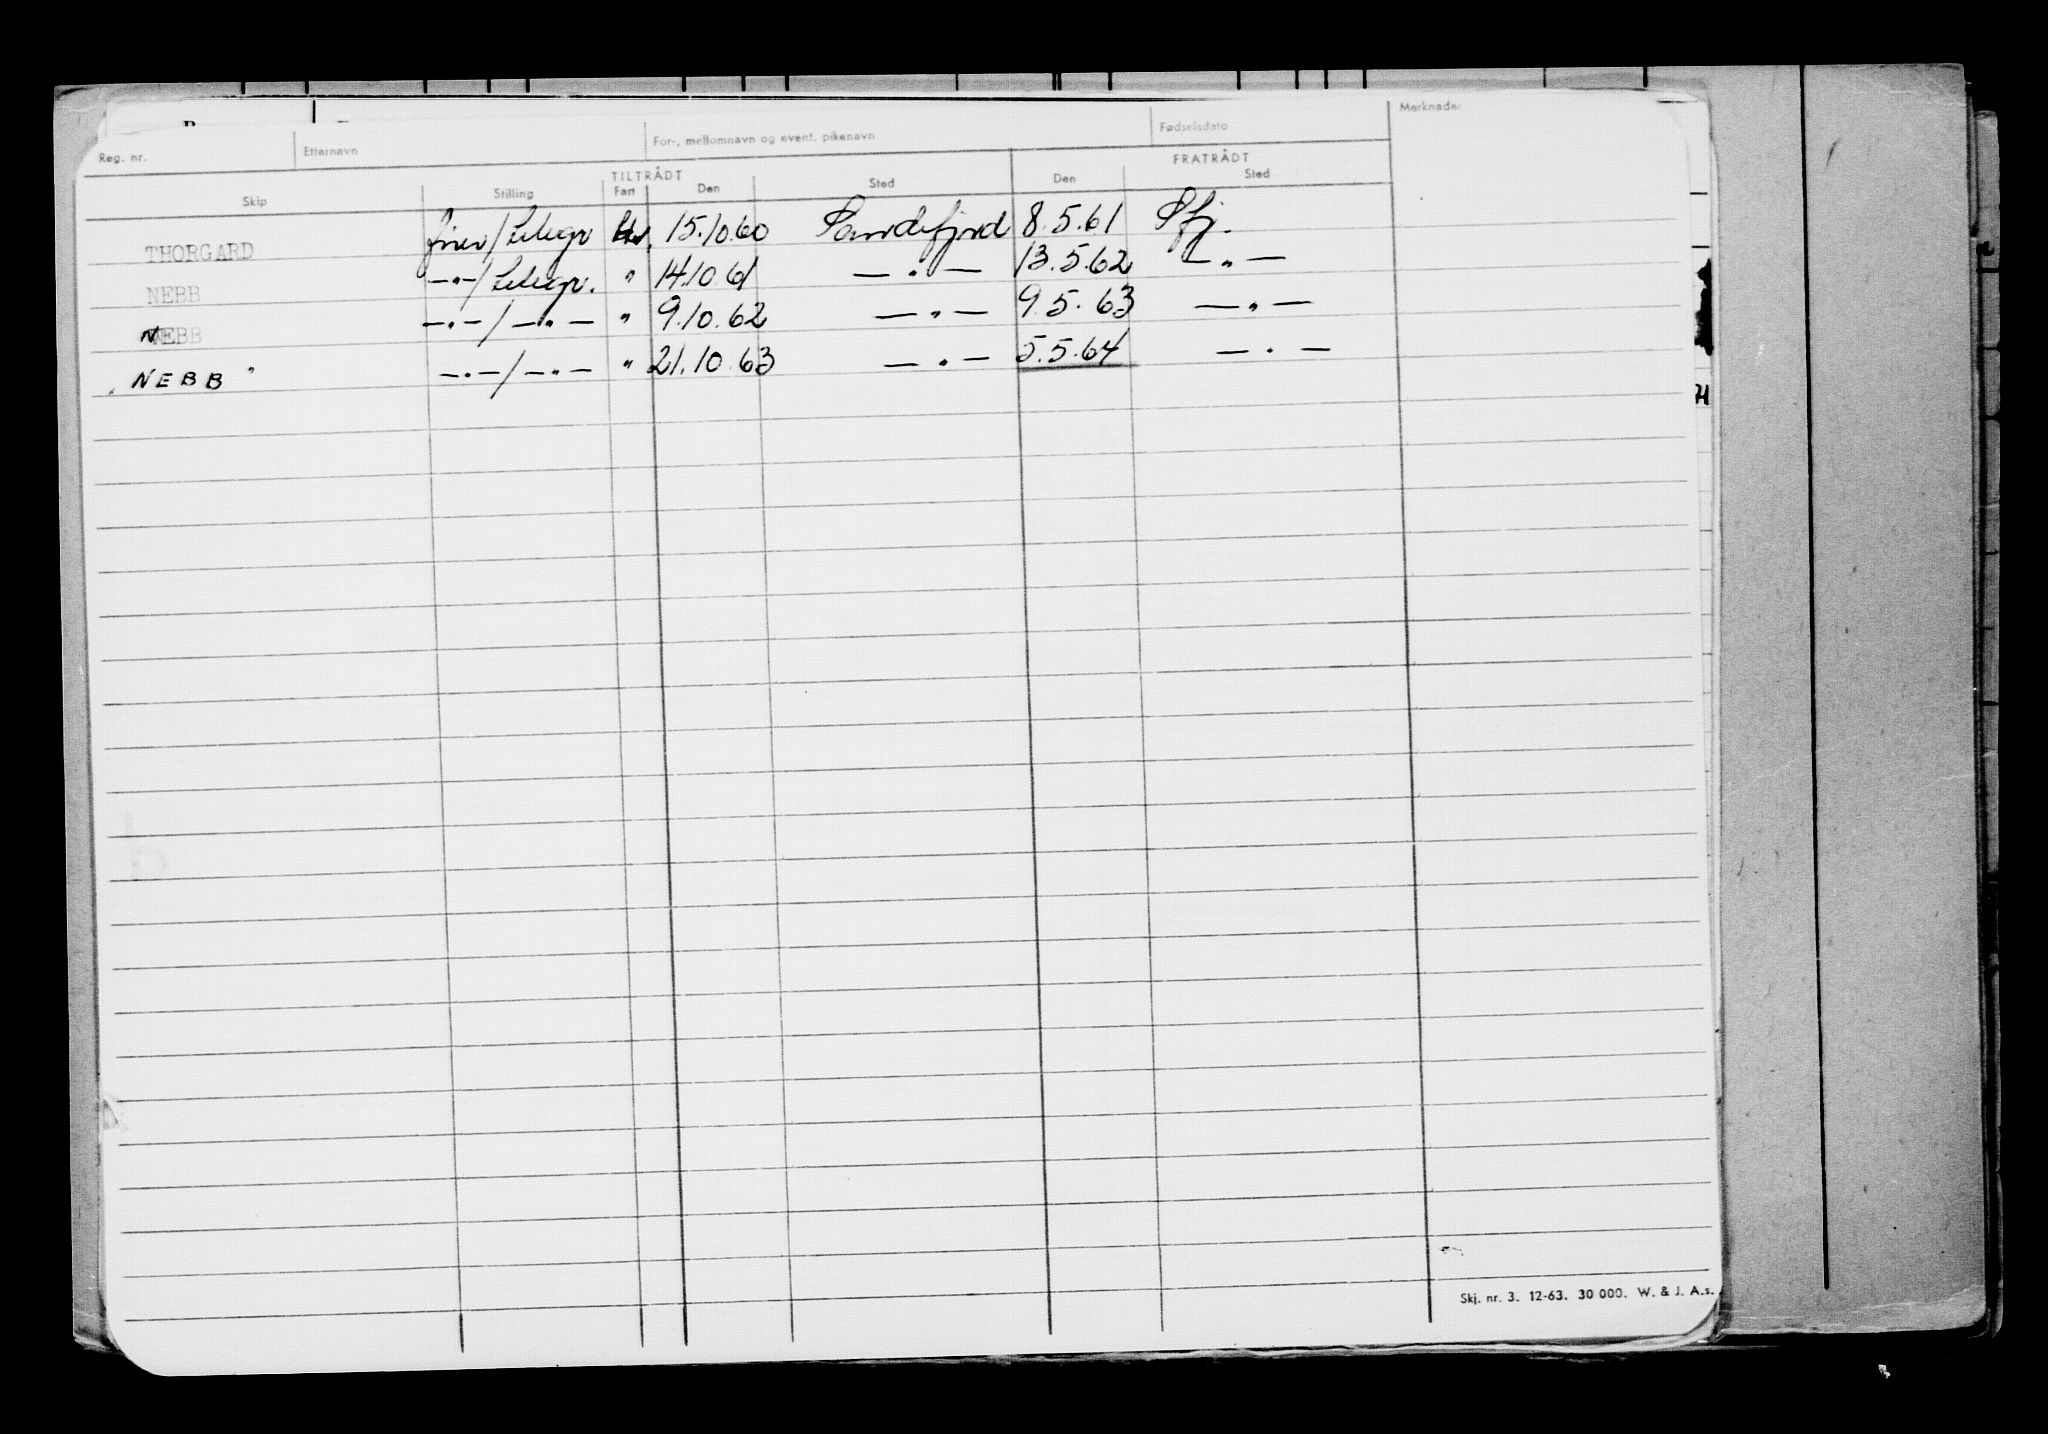 Reg. nr. Etternavn For-, mellomnavn og event. pikenavn Fødselsdato Merknader
TILTRÅDT FRATRÅDT
Skip Stilling Fart Den Sted Den Sted
THORGARD / Telegr 15.10.60 Sandefjord 8.5.61 Sfj.
NEBB —"—/Telegr. " 14.10.61 —"— 13.5.62 —"—
NEBB —"—/—"— " 9.10.62 —"— 9.5.63 —"—
"NEBB" —"—/—"— " 21.10.63 —"— 5.5.64 —"—
Skj. nr. 3. 12-63. 30 000. W. & J. A.s.